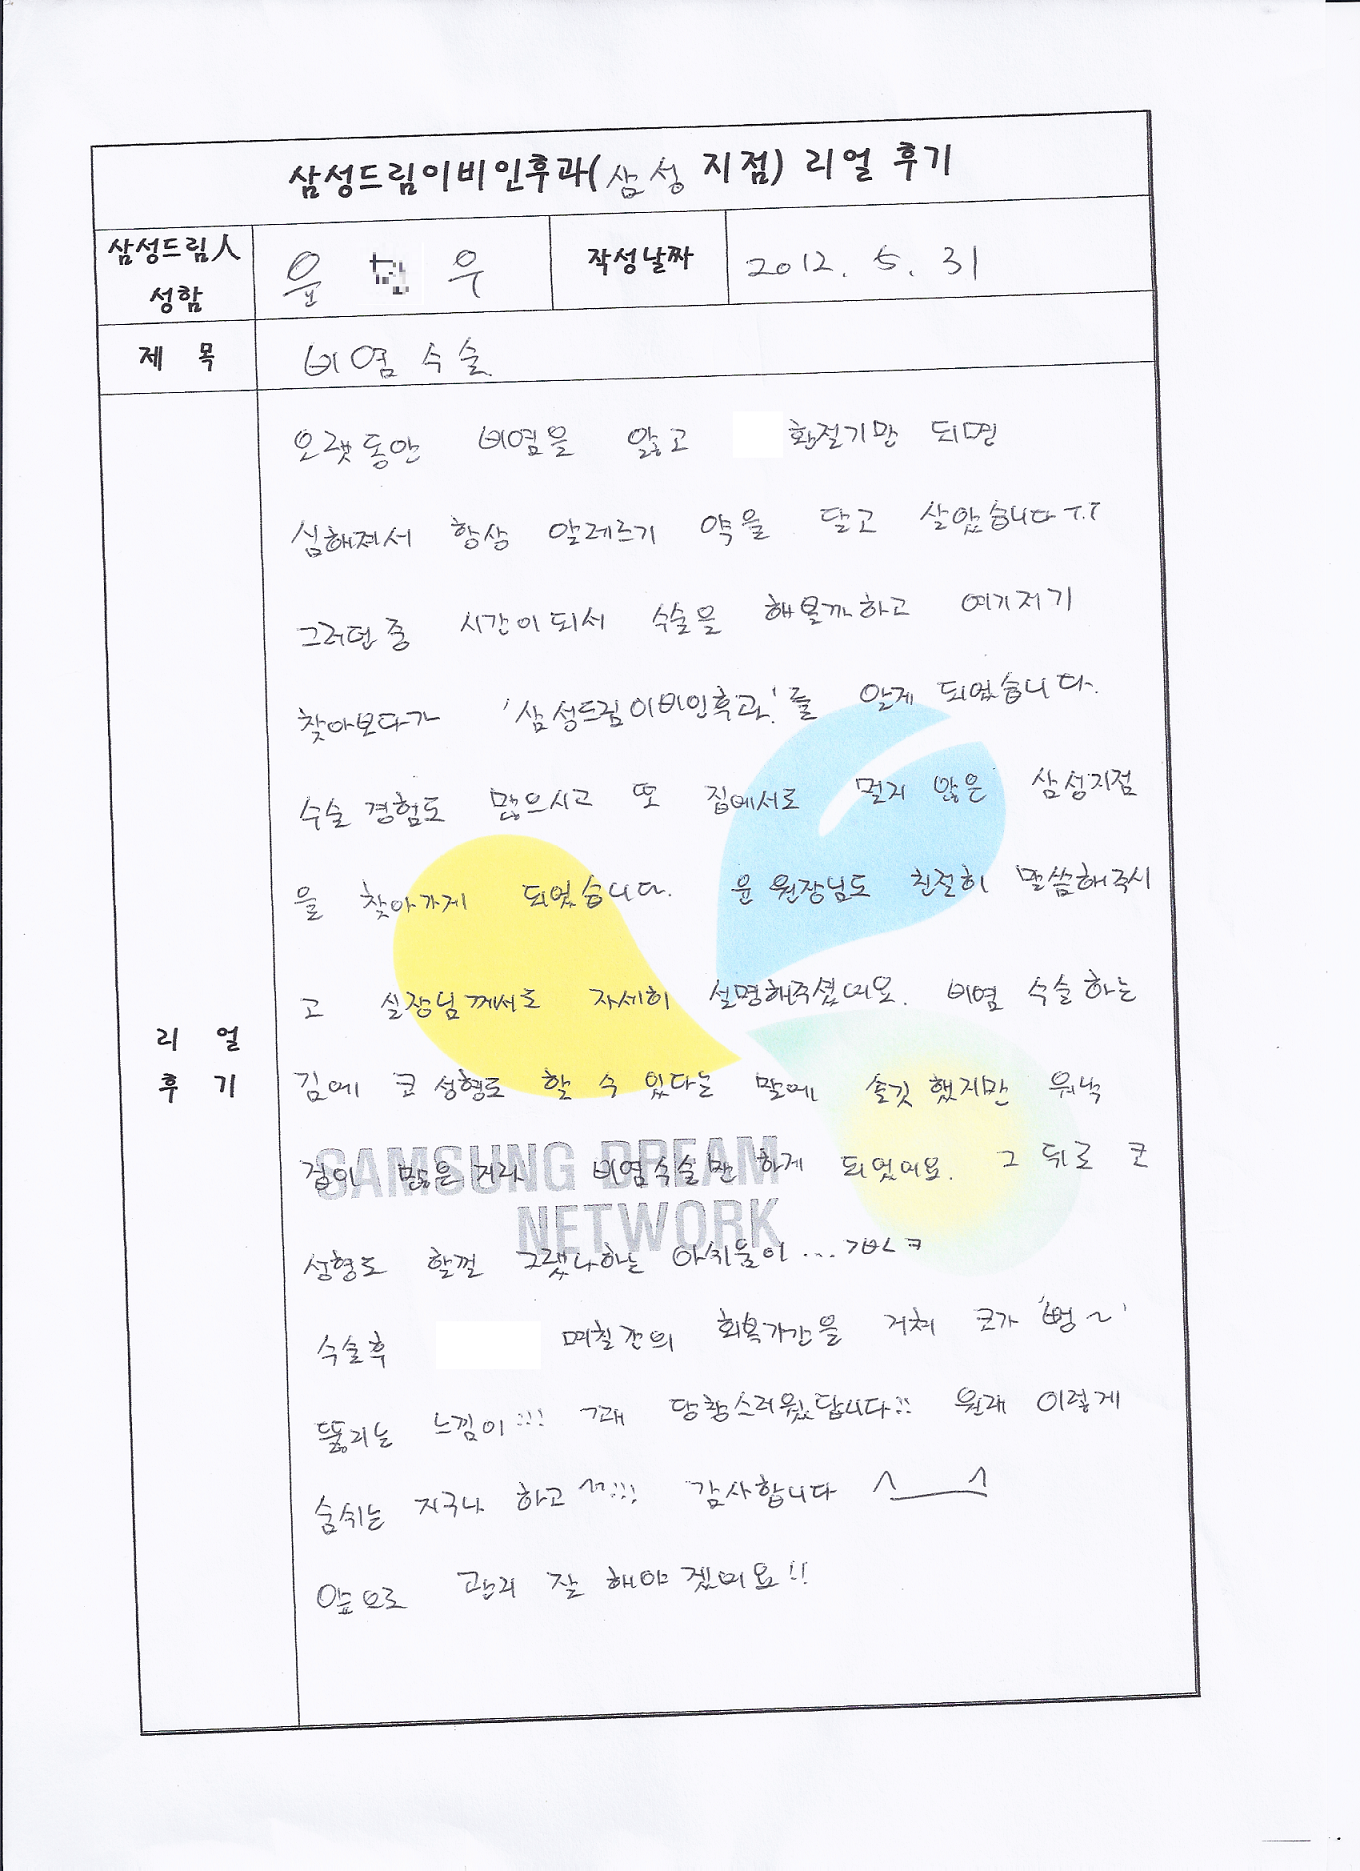 삼성드림이비인후과(삼성 지점) 리얼 후기
삼성드림人 성함
윤 우
작성날짜
2012. 5. 31
제 목
비염수술
리 얼 후 기
오랫동안 비염을 앓고 환절기만 되면
심해져서 항상 알레르기 약을 달고 살았습니다 T.T
그러던 중 시간이되서 수술을 해볼까하고 여기저기
찾아보다가 '삼성드림이비인후과'를 알게 되었습니다.
수술 경험도 많으시고 또 집에서도 멀지 않은 삼성지점
을 찾아가게 되었습니다. 윤 원장님도 친절히 말씀해주시
고 실장님께서도 자세히 설명해주셨어요. 비염 수술하는
김에 코 성형도 할 수 있다는 말에 솔깃했지만 워낙
겁이 많은지라 비염수술만 하게 되었어요. 그 뒤로 코
성형도 할껄 그랬나하는 아쉬움이...
수술후 며칠간의 회복기간을 거쳐 코가 '뻥~'
뚫리는 느낌이!!! 당황스러웠답니다!! 원래 이렇게
숨쉬는 지구나 하고 ^^!!! 감사합니다 ^____^
앞으로 관리 잘 해야겠어요!!
SAMSUNG DREAM
NETWORK